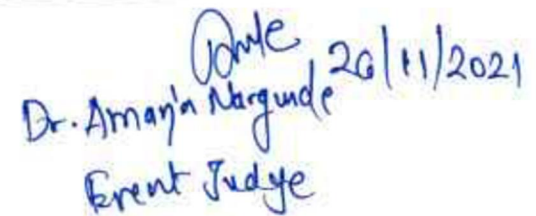 26/11/2021
Dr. Amanja Nargunde
Event Judge